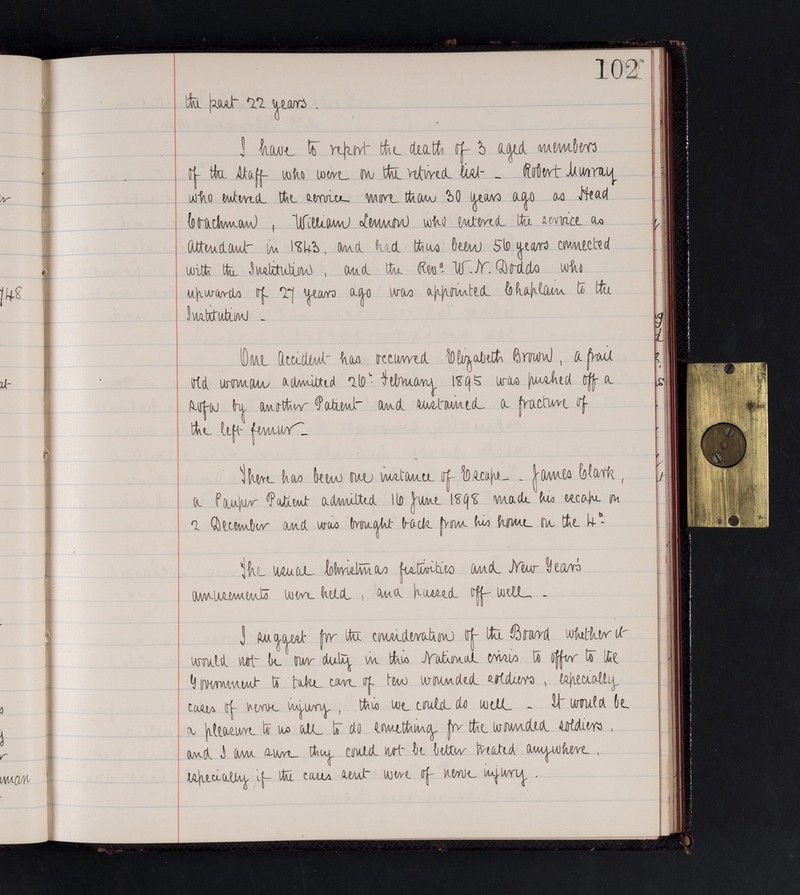 102
the past 22 years.
I have to report the death of 3 aged members
of the Staff who were on the retired list – Robert Murray
who entered the service more than 30 years ago as Head
Coachman, William Lennon who entered the service as
Attendant in 1843, and had thus been 56 years connected
with the Institution, and the Revd. W. N. Dodds who
upwards of 27 years ago was appointed Chaplain to the
Institution –
One Accident has occurred Elizabeth Brown, a frail
old woman admitted 26th February 1895 was pushed off a
sofa by another Patient and sustained a fracture of
the left femur –
There has been one instance of Escape – James Clark,
a Pauper Patient admitted 16 June 1898 made his escape on
2 December and was brought back from his home on the 4th
The usual Christmas festivities and New Year's
amusements were held, and passed off well –
I suggest for the consideration of the Board whether it
would not be our duty in this National crisis to offer to the
Government to take care of ten wounded soldiers, especially
cases of nerve injury, this we could do well – It would be
a pleasure to us all to do something for the wounded soldiers,
and I am sure they could not be better treated anywhere,
especially if the cases sent were of nerve injury.